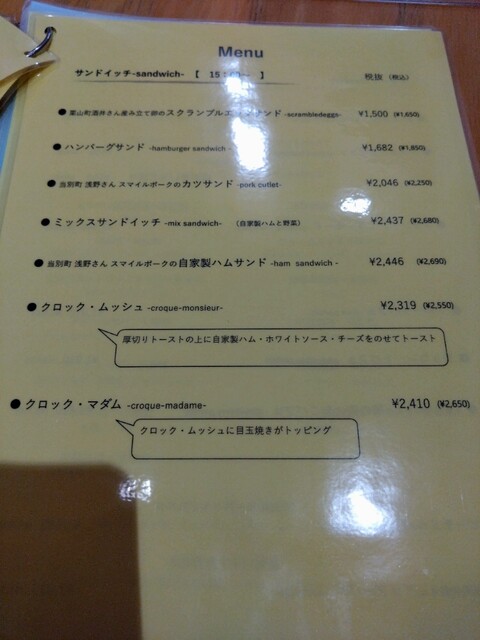 Menu
サンドイッチ-sandwich- 【 15:00～ 】 税抜 (税込)
●栗山町酒井さん産み立て卵のスクランブルエッグサンド -scrambledeggs- ¥1,500 (¥1,650)
●ハンバーグサンド -hamburger sandwich- ¥1,682 (¥1,850)
●当別町 浅野さん スマイルポークのカツサンド -pork cutlet- ¥2,046 (¥2,250)
●ミックスサンドイッチ -mix sandwich- (自家製ハムと野菜) ¥2,437 (¥2,680)
●当別町 浅野さん スマイルポークの自家製ハムサンド -ham sandwich - ¥2,446 (¥2,690)
●クロック・ムッシュ -croque-monsieur- ¥2,319 (¥2,550)
厚切りトーストの上に自家製ハム・ホワイトソース・チーズをのせてトースト
●クロック・マダム -croque-madame- ¥2,410 (¥2,650)
クロック・ムッシュに目玉焼きがトッピング